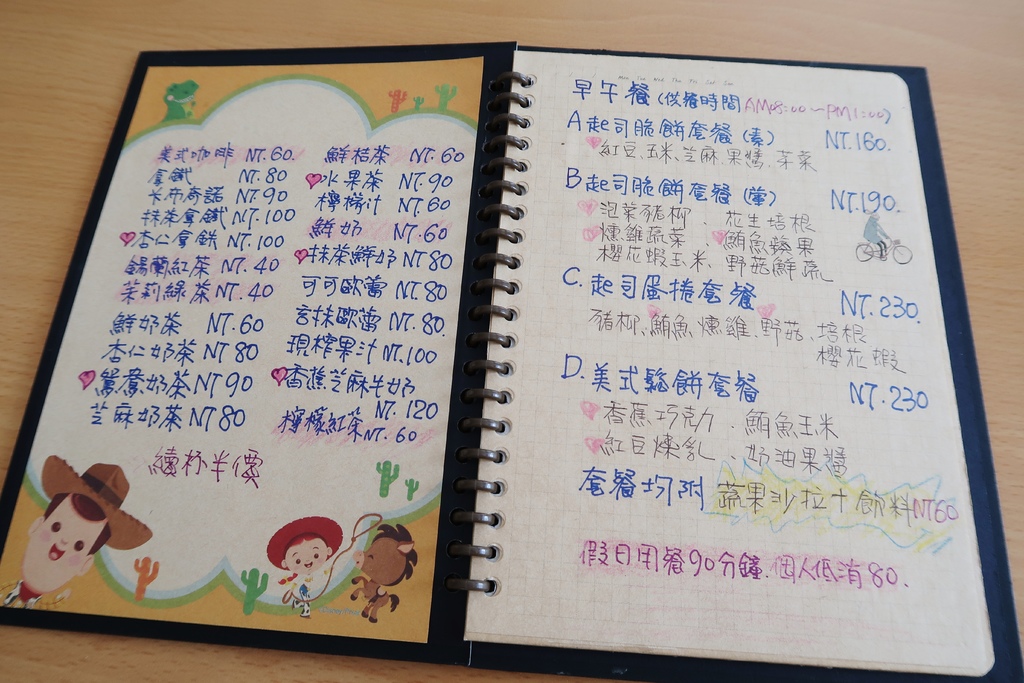 美式咖啡 NT.60.
拿鐵 NT.80
卡布奇諾 NT.90
抹茶拿鐵 NT.100
杏仁拿鐵 NT.100
錫蘭紅茶 NT.40
茉莉綠茶 NT.40
鮮奶茶 NT.60
杏仁奶茶 NT 80
鴛鴦奶茶 NT 90
芝麻奶茶 NT 80
鮮桔茶 NT.60
水果茶 NT.90
檸檬汁 NT.60
鮮奶 NT.60
抹茶鮮奶 NT 80
可可歐蕾 NT.80
玄抹歐蕾 NT.80.
現榨果汁 NT.100
香蕉芝麻牛奶
NT.120
檸檬紅茶 NT.60
續杯半價
早午餐(供餐時間AM08:00～PM1:00)
A起司脆餅套餐(素) NT.160.
紅豆、玉米、芝麻、果醬、芋菜
B起司脆餅套餐(葷) NT.190.
泡菜豬柳、花生培根
燻雞蔬菜、鮪魚蘋果
櫻花蝦玉米、野菇鮮蔬
C.起司蛋捲套餐 NT.230.
豬柳、鮪魚、燻雞、野菇、培根
櫻花蝦
D.美式鬆餅套餐 NT.230
香蕉巧克力、鮪魚玉米
紅豆煉乳、奶油果醬
套餐均附 蔬果沙拉+飲料NT60
假日用餐90分鐘.個人低消80.